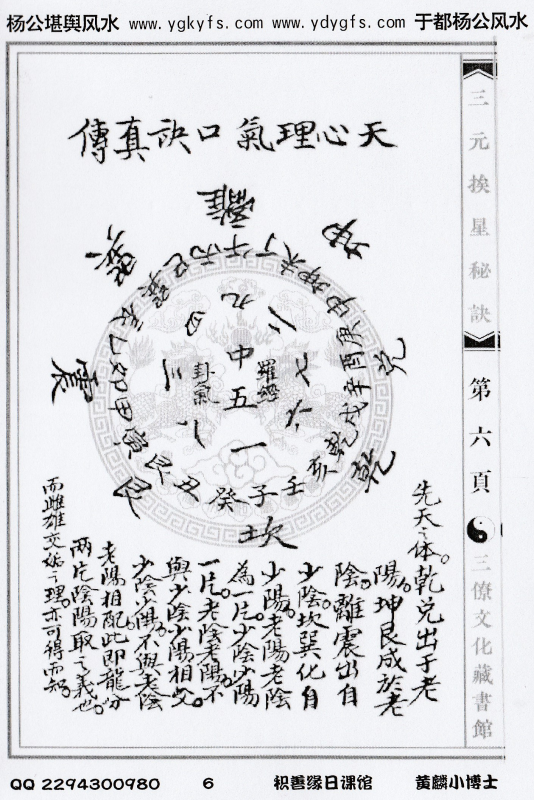 杨公堪舆风水 www.ygkyfs.com www.ydygfs.com 于都杨公风水
三元挨星秘訣
第六頁
三僚文化藏書館
天心理氣口訣真傳
離
巽
坤
震
兌
艮
乾
坎
未丁午丙巳巽辰乙卯甲寅艮丑癸子壬亥乾戌辛酉庚申坤
九
四
二
三
七
八
六
一
中五
卦氣
羅經
先天之体。乾兌出于老
陽。坤艮成於老
陰。離震出自
少陰。坎巽化自
少陽。老陽老陰
為一片。少陰少陽
一片。老陰老陽不
與少陰少陽相交。
少陰少陽不與老陰
老陽相配此即龍分
兩片陰陽取之義也。
而雌雄交姤之理。亦可得而知。
QQ 2294300980 6 积善缘日课馆 黄麟小博士